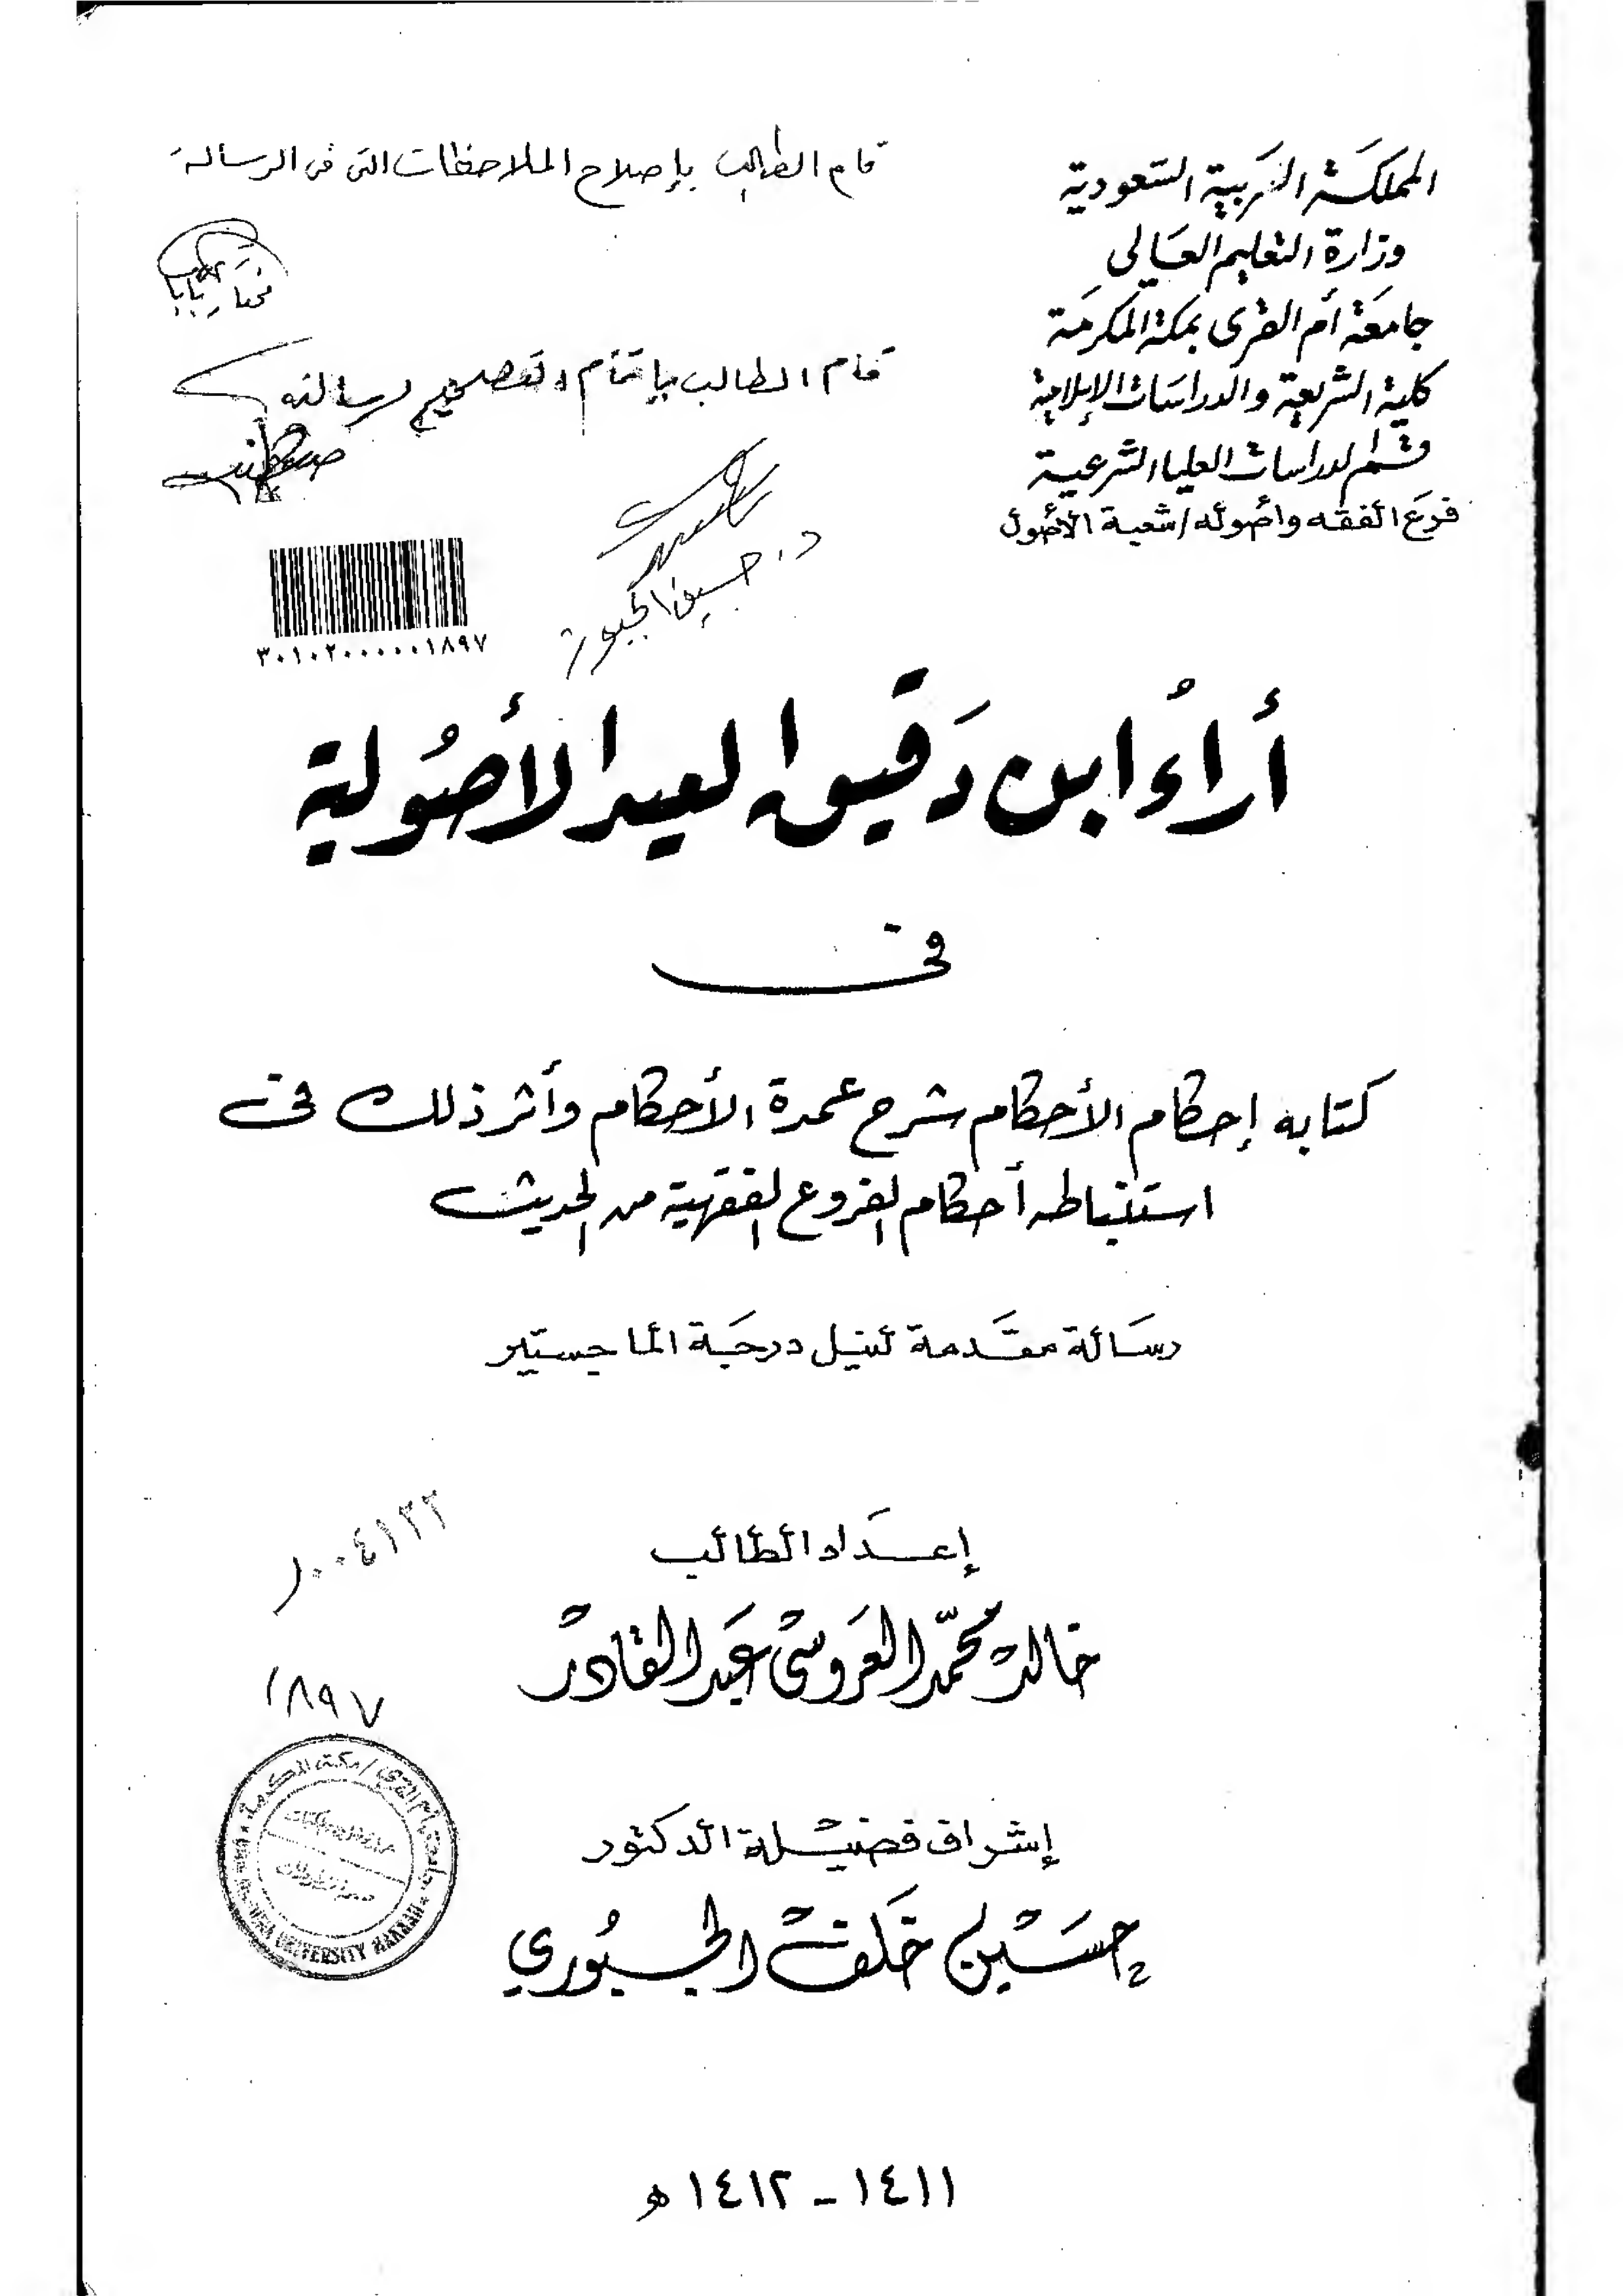 المملكة العربية السعودية
وزارة التعليم العالي
جامعة أم القرى بمكة المكرمة
كلية الشريعة والدراسات الإسلامية
قسم الدراسات العليا الشرعية
فرع الفقه وأصوله / شعبة الأصول
قام الطالب بإصلاح الملاحظات التى فى الرسالة
قام الطالب بإتمام التصحيح لرسالته
د. حسين الجبوري
٣٠١٠٢٠٠٠٠٠١٨٩٧
أراءُ ابن دَقيق العيد الأصُولية
فى
كتابه إحكام الأحكام شرح عمدة الأحكام وأثر ذلك فى
استنباطه أحكام الفروع الفقهية من الحديث
رسَالة مقَدمة لنيل درجَة الماجستير
١٠٠٤١٢٢
إعدَاد الطالب
خالد محمّد العَروسى عَبد القادر
١٨٩٧
إشراف فضيلة الدكتور
حسَين خَلف الجبُوري
جامعة أم القرى / مكة المكرمة
UNIVERSITY MAKKAH
١٤١١ - ١٤١٢ ه